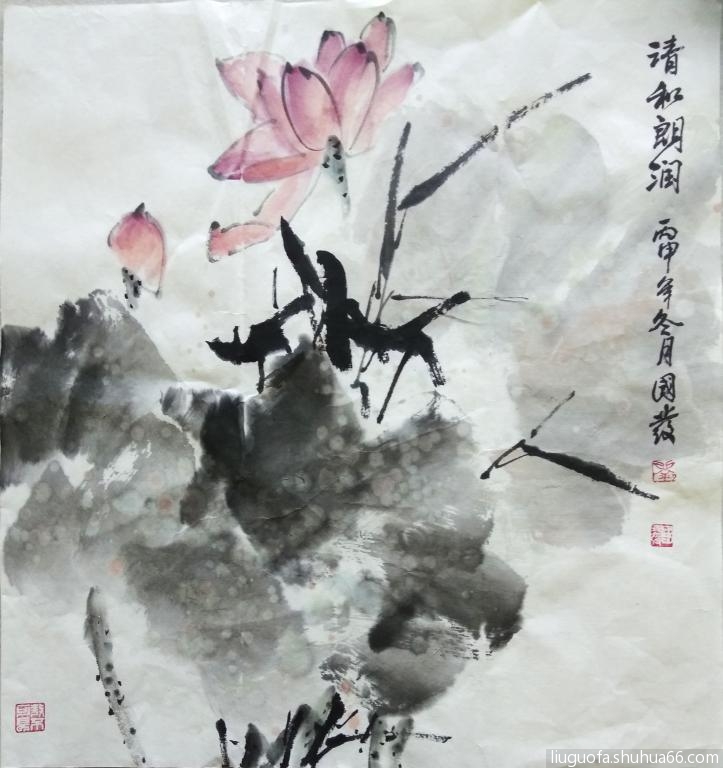 清和朗润 丙申年冬月国发
liuguofa.shuhua66.com